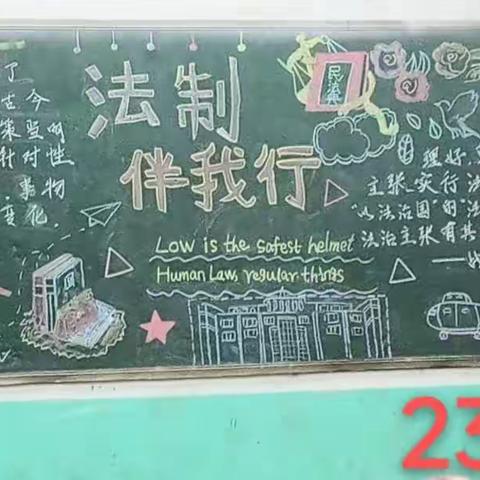 了
古今
策略的
针对性
事物
变化.
法制
伴我行
民法典
Low is the safest helmet
Human Law, regular things
理好,
主张实行法
"以法治国"的"法
法治主张有其
23